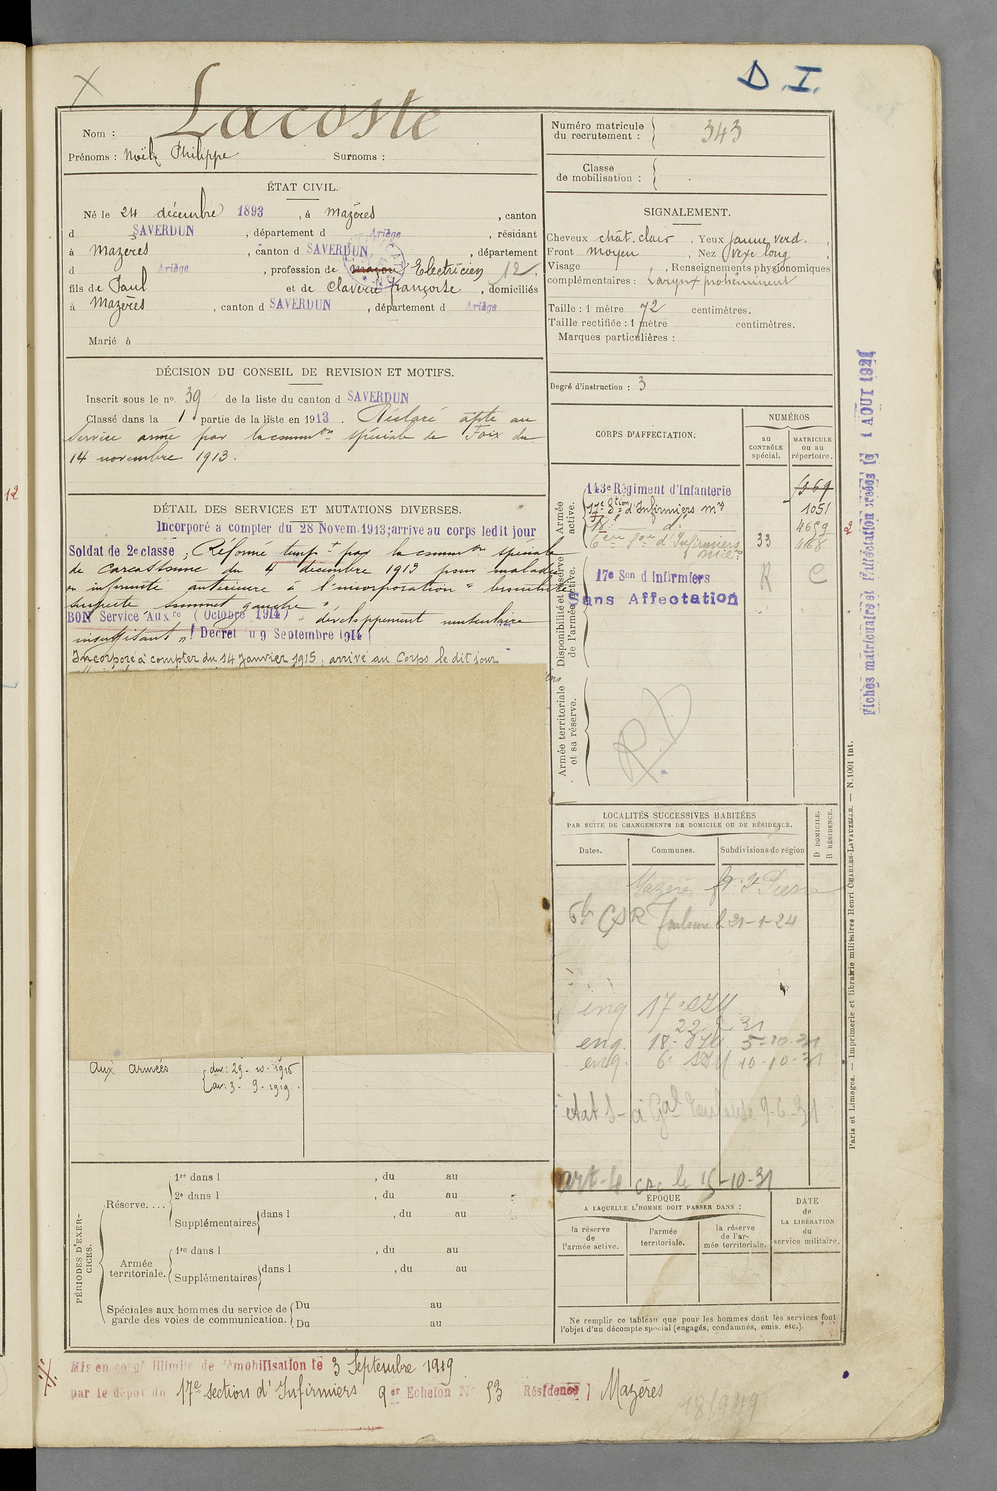 D. I.
Lacoste
Nom :
Prénoms : Noël, Philippe Surnoms :
Numéro matricule du recrutement : 343
Classe de mobilisation :
ÉTAT CIVIL.
Né le 24 décembre 1893, à Mazères, canton
d SAVERDUN, département d Ariège, résidant
à Mazères, canton d SAVERDUN, département
d Ariège, profession de maçon Electricien 12.
fils de Paul et de Claverie françoise, domiciliés
à Mazères, canton d SAVERDUN, département d Ariège
Marié à
SIGNALEMENT.
Cheveux chât. clair, Yeux jaune verd.
Front moyen, Nez long
Visage , Renseignements physionomiques
complémentaires : Larynx proéminent
Taille : 1 mètre 72 centimètres.
Taille rectifiée : 1 mètre centimètres.
Marques particulières :
Degré d'instruction : 3
DÉCISION DU CONSEIL DE REVISION ET MOTIFS.
Inscrit sous le nº 39 de la liste du canton d SAVERDUN
Classé dans la 1 partie de la liste en 1913. Déclaré apte au
service armé par la common spéciale de Foix du
14 novembre 1913.
DÉTAIL DES SERVICES ET MUTATIONS DIVERSES.
Incorporé a compter du 28 Novem. 1913; arrive au corps ledit jour
Soldat de 2e classe; Réformé tempre par la common spéciale
de Carcassonne du 4 décembre 1913 pour maladie
ou infirmité antérieure à l'incorporation "bronchite
suspecte sommet gauche"
BON Service Auxre (Octobre 1914) "développement musculaire
insuffisant" (Décret du 9 Septembre 1914)
Incorporé à compter du 14 Janvier 1915, arrivé au Corps le dit jour
Aux armées du : 29-10-1916
au : 3-9-1919.
CORPS D'AFFECTATION.
NUMÉROS
au CONTRÔLE spécial.
MATRICULE OU AU répertoire.
Armée active.
143e Régiment d'Infanterie
17e Son d'Infirmiers mres 1051
18e do 4659
6ème Son d'Infirmiers 33
Disponibilité et réserve de l'armée active.
17e Son d Infirmiers R C
Sans Affectation
Armée territoriale et sa réserve.
R.D
LOCALITÉS SUCCESSIVES HABITÉES
PAR SUITE DE CHANGEMENTS DE DOMICILE OU DE RÉSIDENCE.
Dates. Communes. Subdivisions de région
D DOMICILE.
R RÉSIDENCE.
Mazères
Toulouse 21-1-24
enq 17e SIM
22 9 31
enq. 18e SIM 5-10-31
enq. 6e SIM 10-10-31
état S- Toulouse 9-6-31
art-4 le 15-10-31
ÉPOQUE
A LAQUELLE L'HOMME DOIT PASSER DANS :
la réserve de l'armée active.
l'armée territoriale.
la réserve de l'armée territoriale.
DATE de LA LIBÉRATION du service militaire.
Ne remplir ce tableau que pour les hommes dont les services font
l'objet d'un décompte spécial (engagés, condamnés, omis, etc.).
PÉRIODES D'EXERCICES.
Réserve....
1re dans l , du au
2e dans l , du au
Supplémentaires dans l , du au
Armée territoriale.
1re dans l , du au
Supplémentaires dans l , du au
Spéciales aux hommes du service de garde des voies de communication.
Du au
Du au
Mis en congé illimité de démobilisation le 3 Septembre 1919
par le dépôt du 17e section d'Infirmiers 9er Echelon No 53 Résidence Mazères
18/9419
Fiches matriculaire et d'affectation créées le 1 AOUT 1921
Paris et Limoges. — Imprimerie et librairie militaires Henri CHARLES-LAVAUZELLE. — N. 1001 Int.
12
2